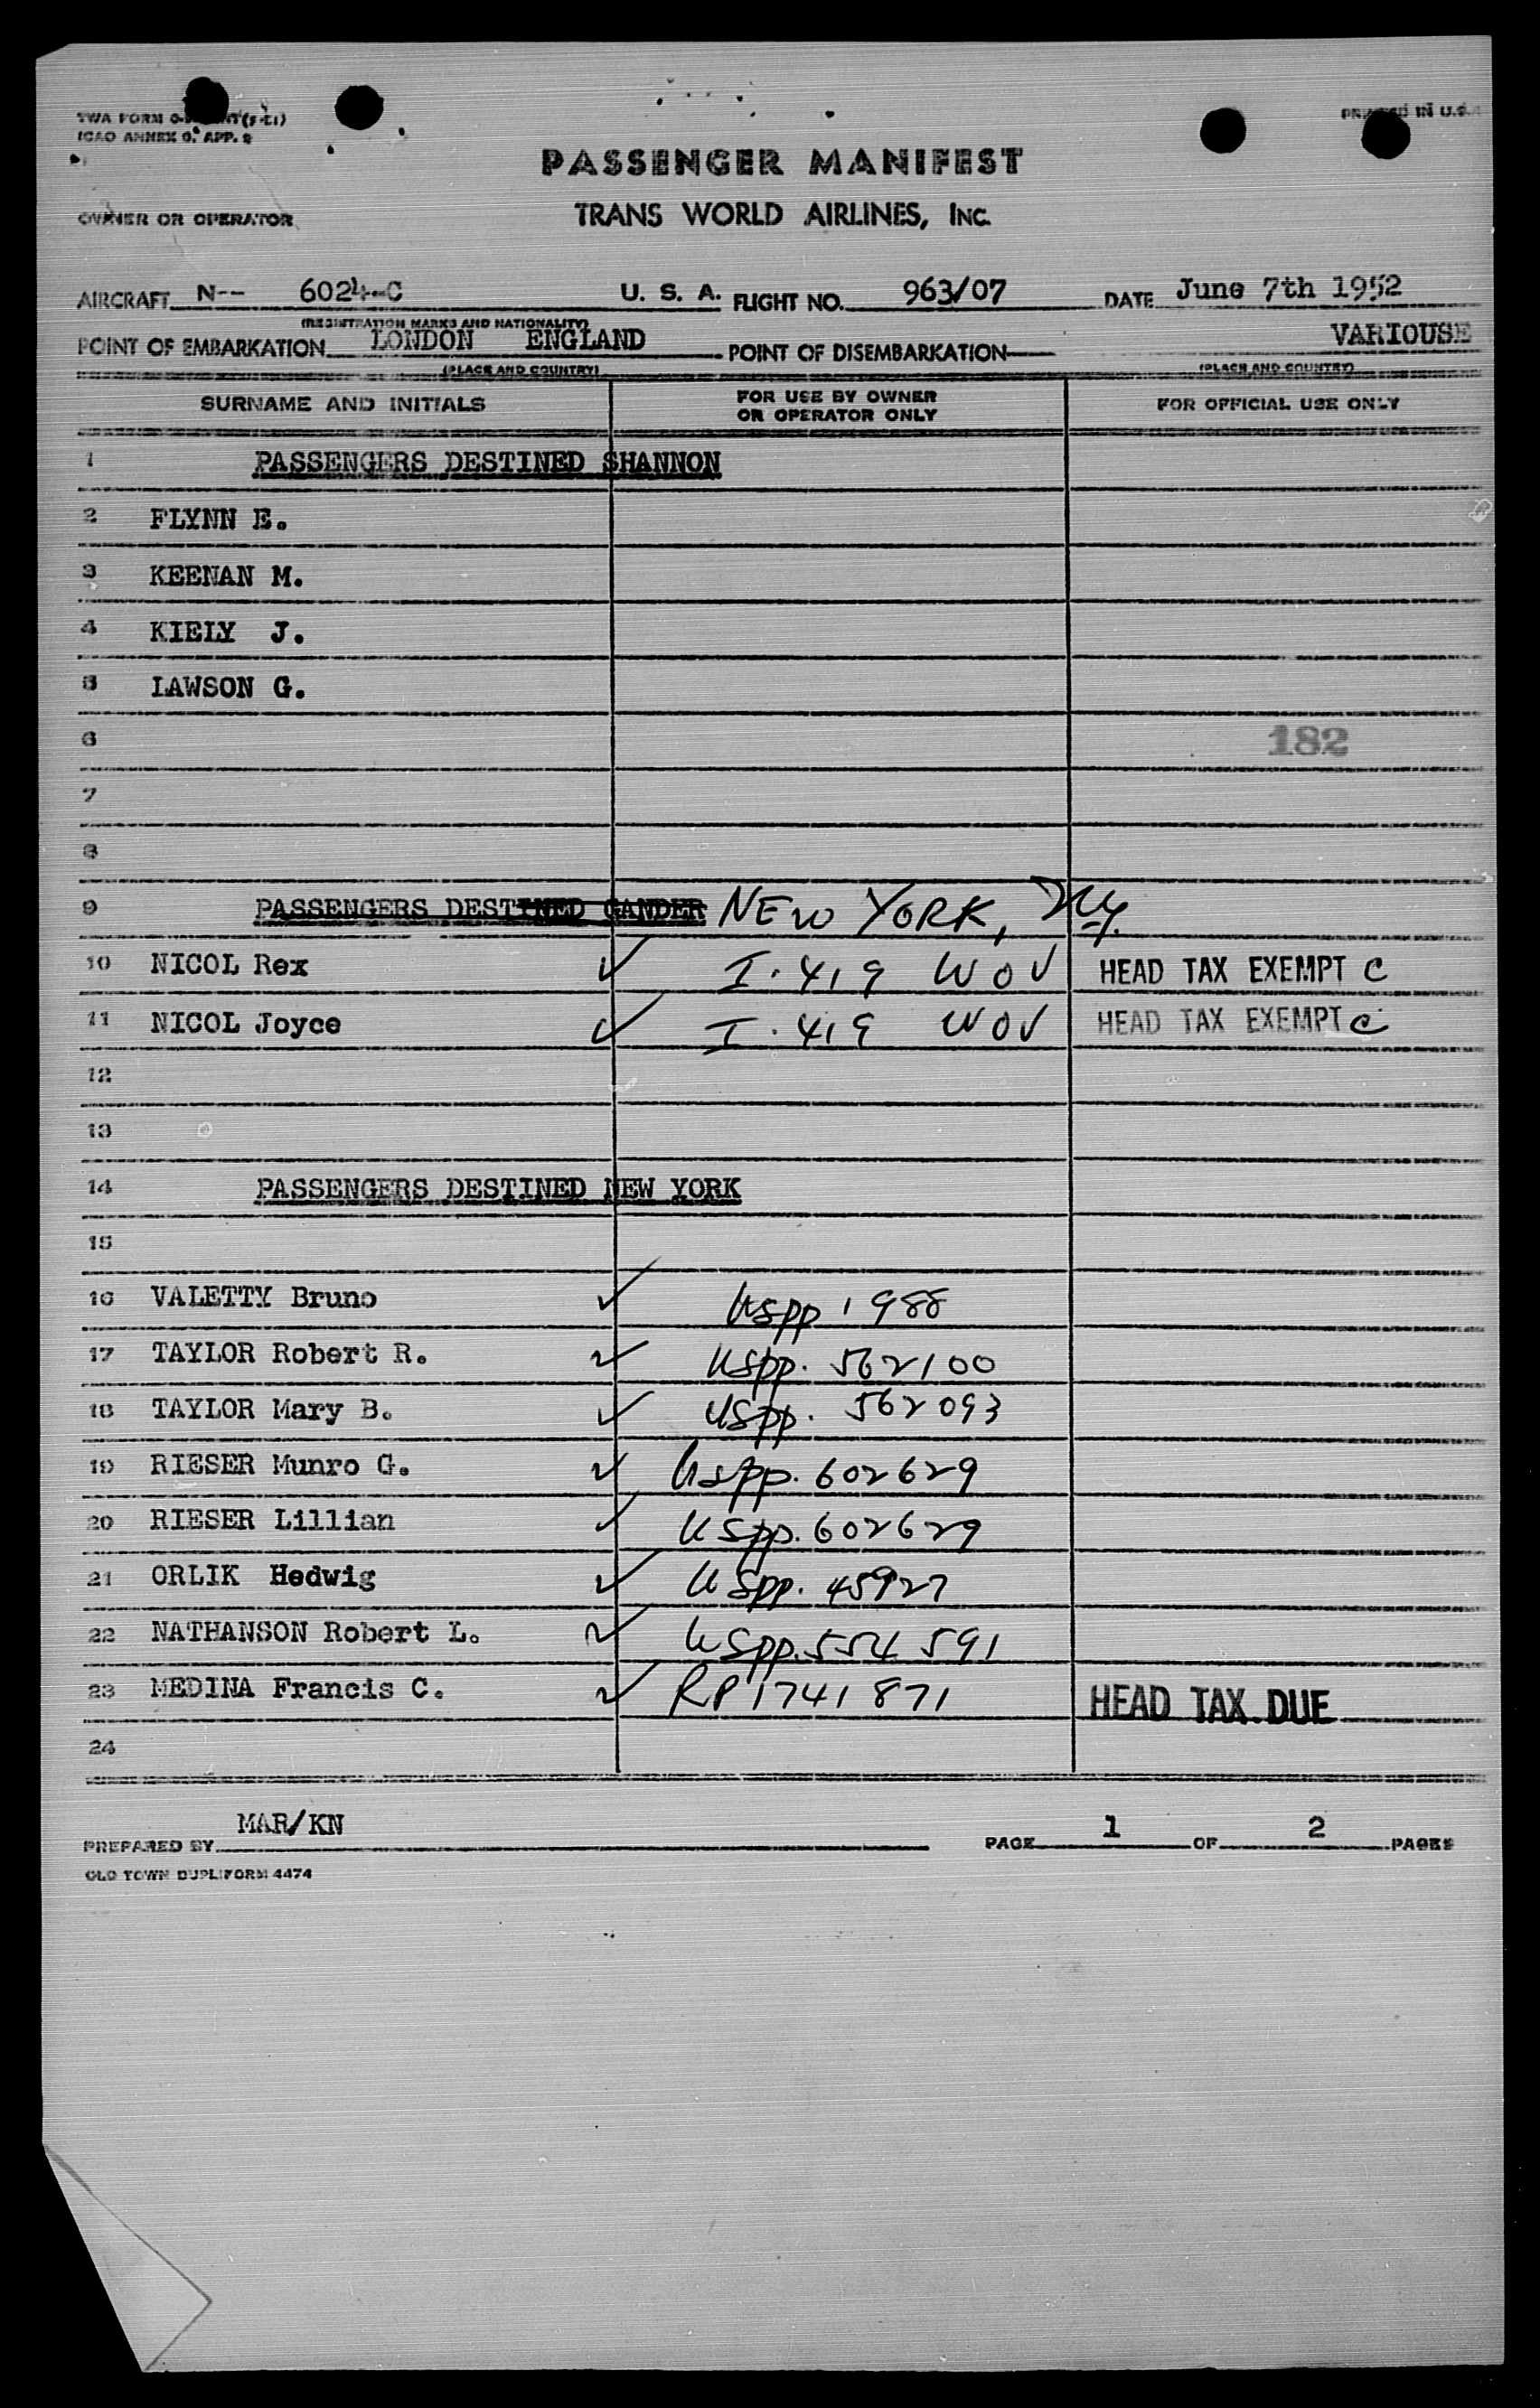 ICAO ANNEX 9, APP. 2
PRINTED IN U.S.A.
PASSENGER MANIFEST
OWNER OR OPERATOR TRANS WORLD AIRLINES, INC.
AIRCRAFT N-- 6024-C U. S. A. FLIGHT NO. 963/07 DATE June 7th 1952
(REGISTRATION MARKS AND NATIONALITY)
POINT OF EMBARKATION LONDON ENGLAND POINT OF DISEMBARKATION VARIOUSE
(PLACE AND COUNTRY) (PLACE AND COUNTRY)
SURNAME AND INITIALS FOR USE BY OWNER OR OPERATOR ONLY FOR OFFICIAL USE ONLY
1 PASSENGERS DESTINED SHANNON
2 FLYNN E.
3 KEENAN M.
4 KIELY J.
5 LAWSON G.
6 182
7
8
9 PASSENGERS DESTINED GANDER NEW YORK, NY.
10 NICOL Rex ✓ I. 419 WOV HEAD TAX EXEMPT C
11 NICOL Joyce ✓ I. 419 WOV HEAD TAX EXEMPT C
12
13
14 PASSENGERS DESTINED NEW YORK
15
16 VALETTY Bruno ✓ USpp 1988
17 TAYLOR Robert R. ✓ USpp. 562100
18 TAYLOR Mary B. ✓ USpp. 562093
19 RIESER Munro G. ✓ USpp. 602629
20 RIESER Lillian ✓ USpp. 602629
21 ORLIK Hedwig ✓ USpp. 45927
22 NATHANSON Robert L. ✓ USpp. 554591
23 MEDINA Francis C. ✓ RP 1741871 HEAD TAX DUE
24
PREPARED BY MAR/KN PAGE 1 OF 2 PAGES
OLD TOWN DUPLIFORM 4474